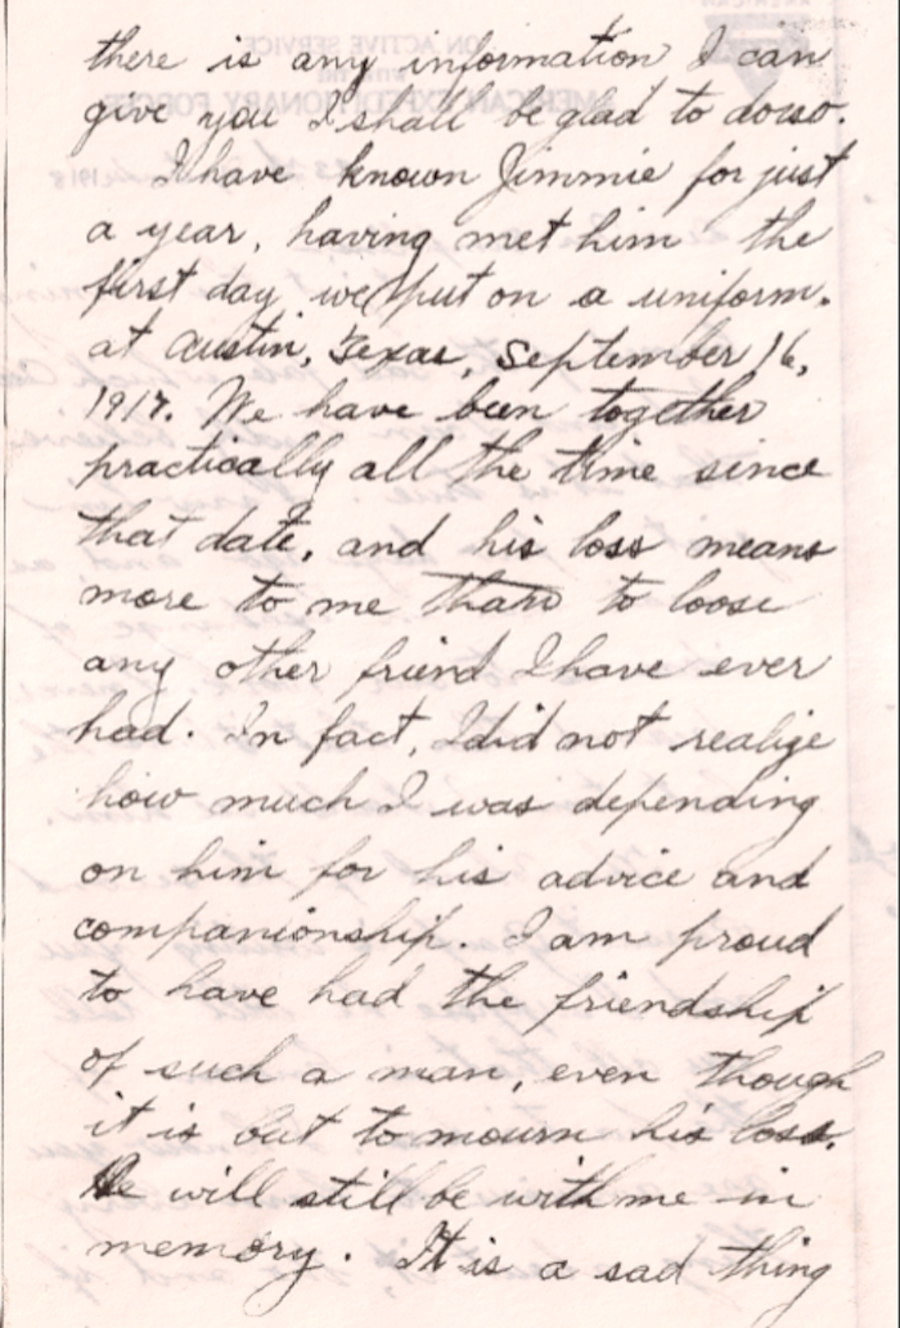 there is any information I can
give you I shall be glad to do so.
I have known Jimmie for just
a year, having met him the
first day we put on a uniform.
at Austin, Texas, September 16,
1917. We have been together
practically all the time since
that date, and his loss means
more to me than to loose
any other friend I have ever
had. In fact, I did not realize
how much I was depending
on him for his advice and
companionship. I am proud
to have had the friendship
of such a man, even though
it is but to mourn his loss.
He will still be with me in
memory. It is a sad thing